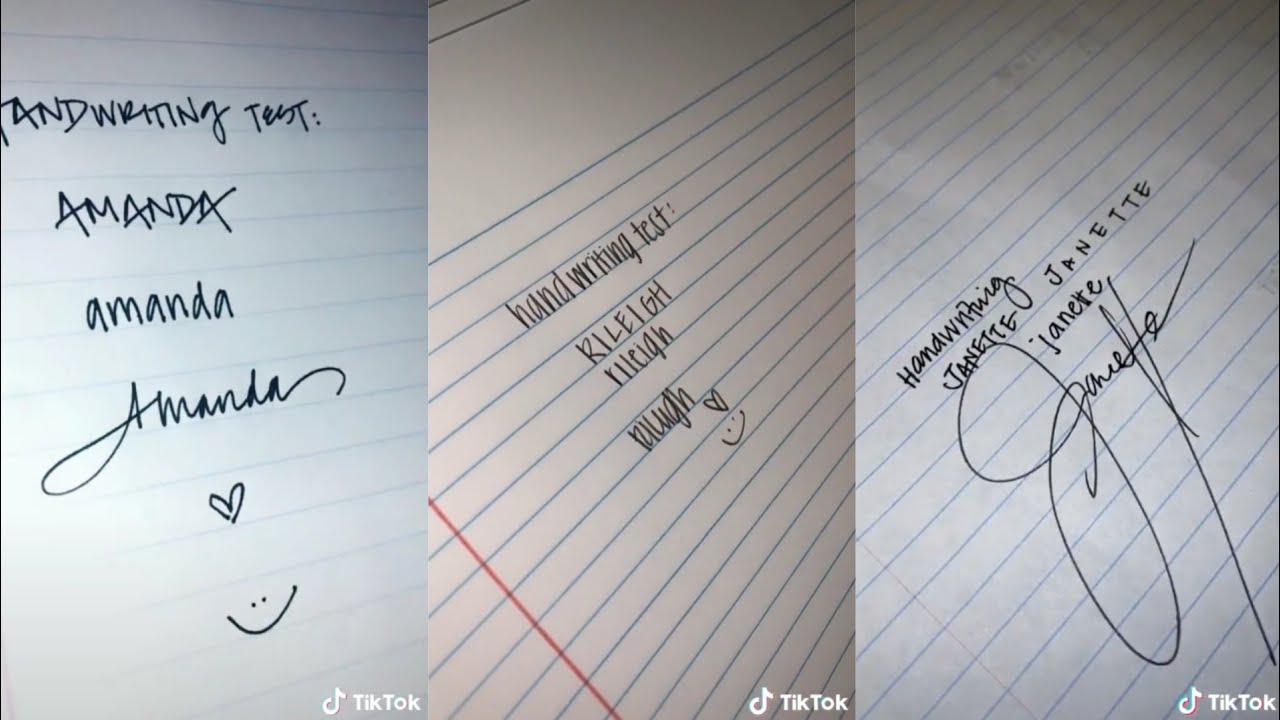 HANDWRITING TEST:
AMANDA
amanda
Amanda
TikTok
handwriting test:
RILEIGH
rileigh
rileigh
TikTok
Handwriting
JANETTE JANETTE
janette
Janette
TikTok